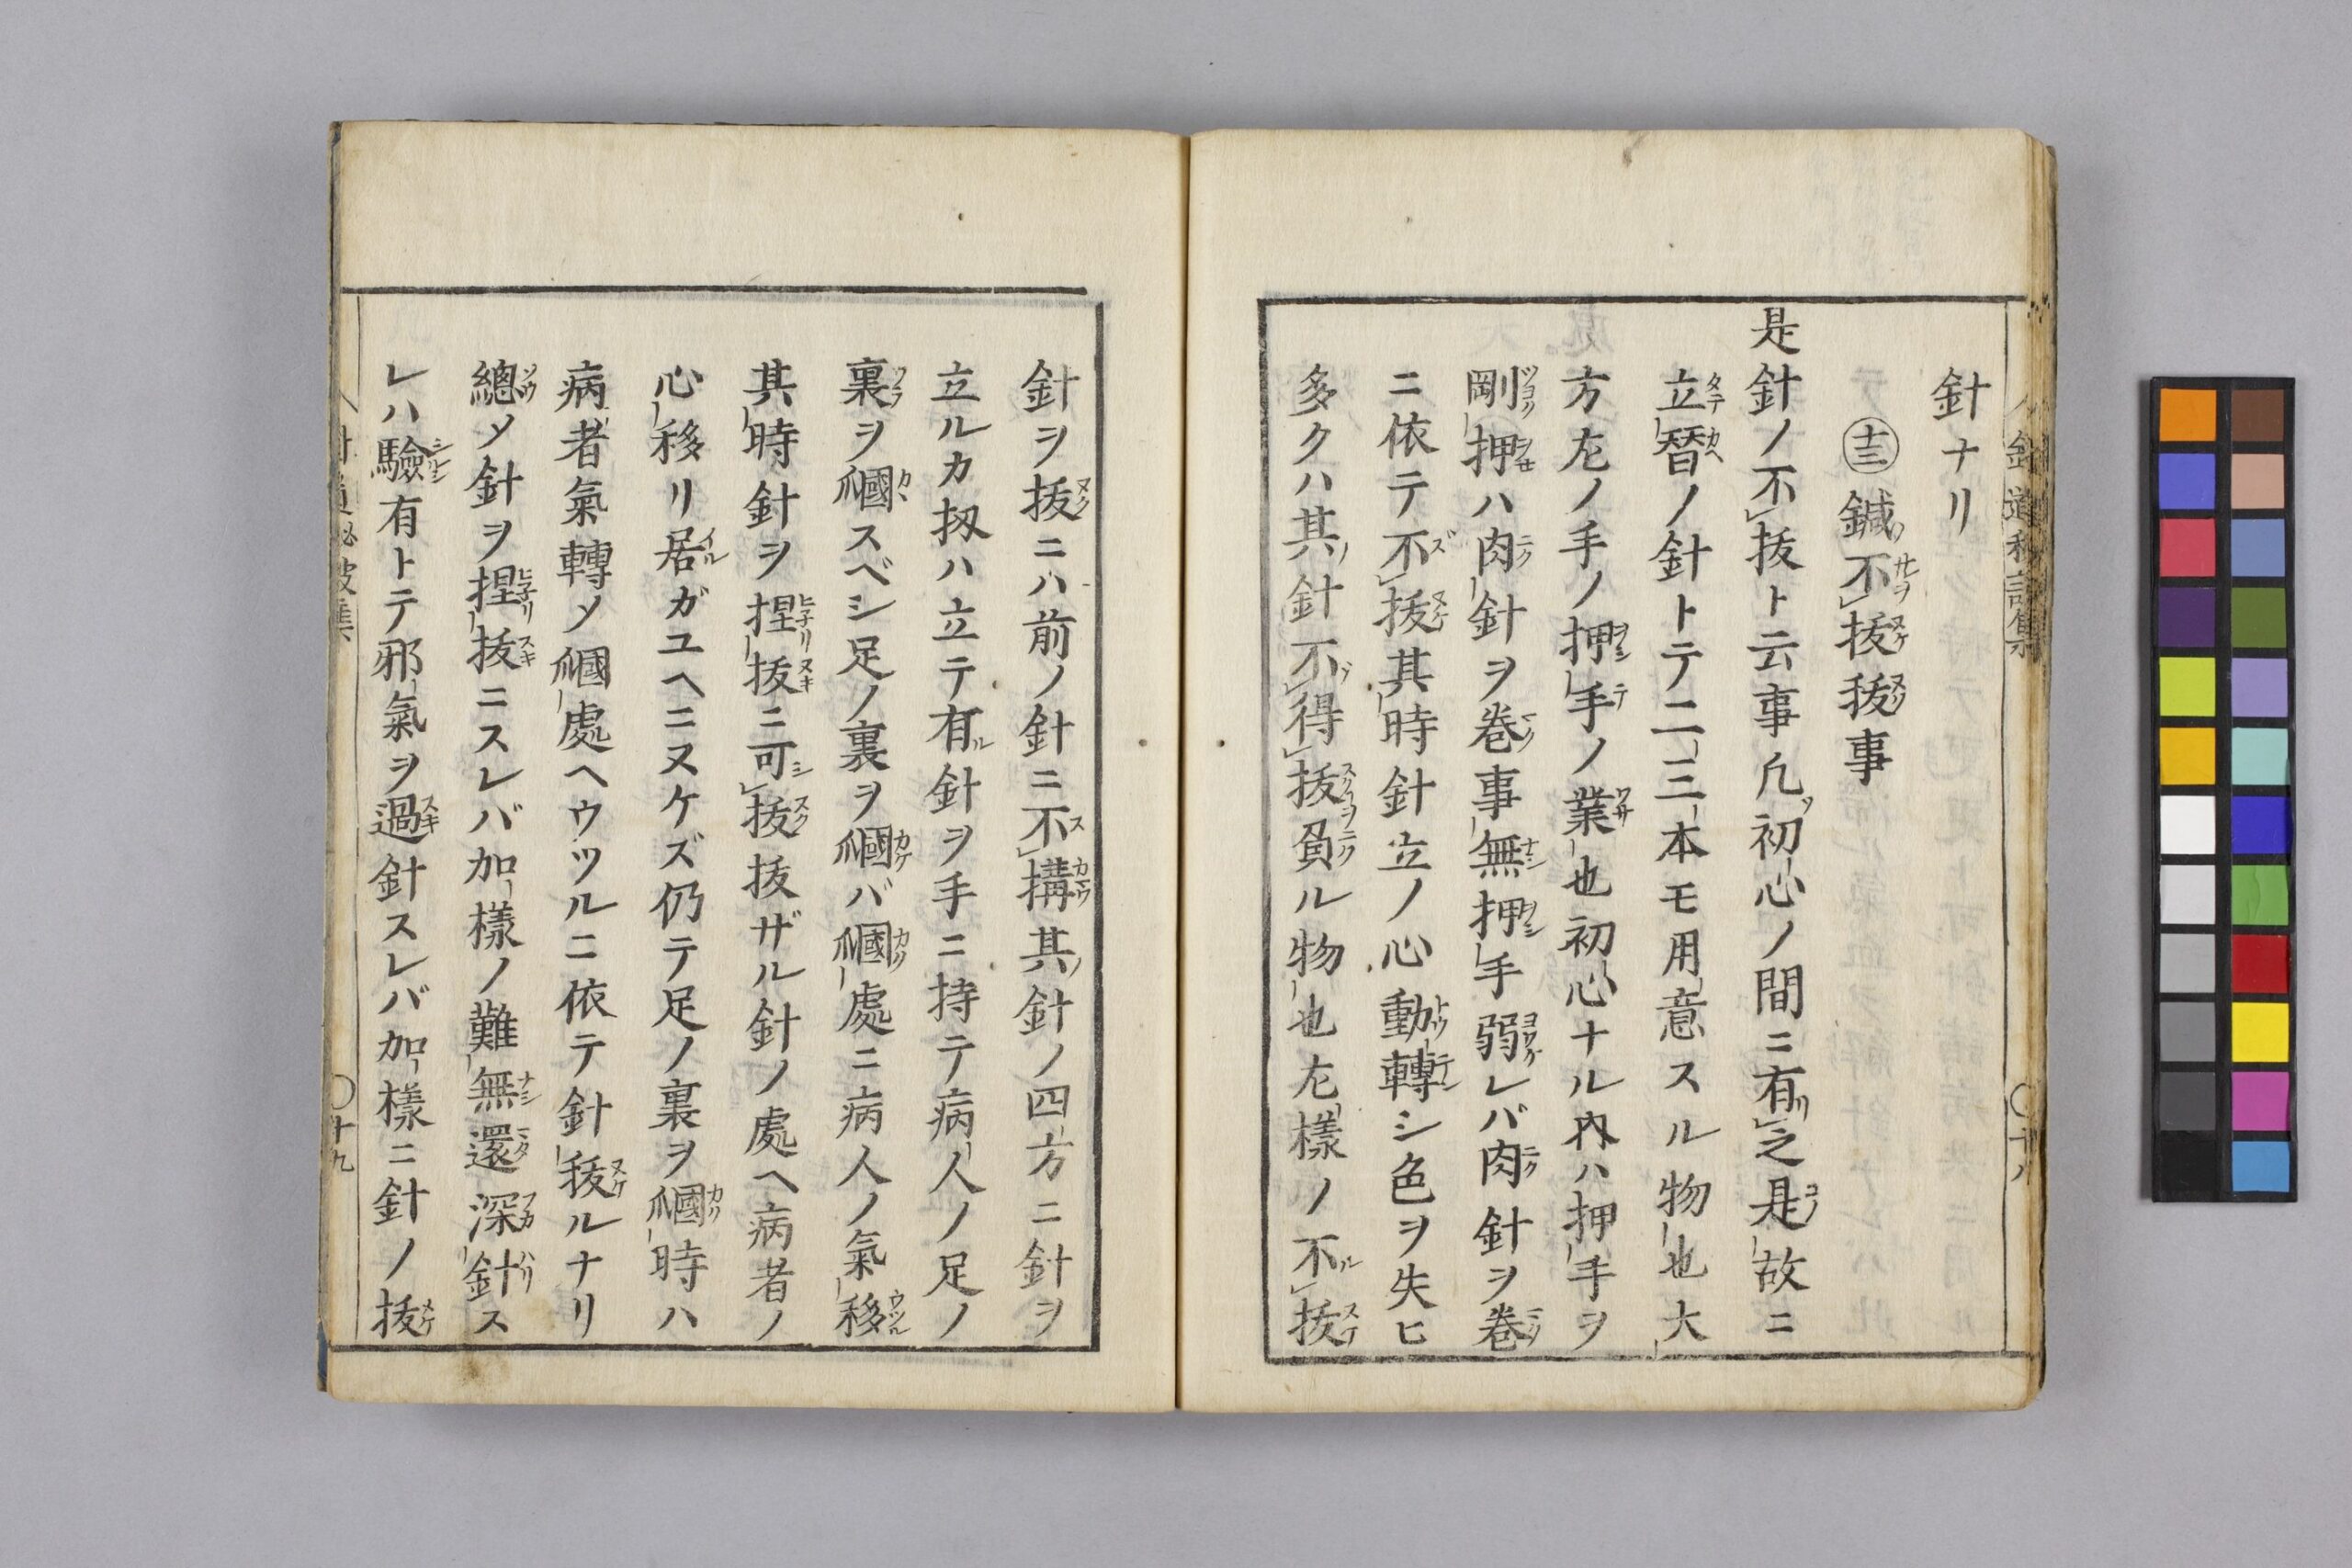 針ナリ
十三 鍼不抜抜事
是針ノ不抜ト云事凢初心ノ間ニ有之是故ニ
立替ノ針トテ二三本モ用意スル物也大
方左ノ手ノ押手ノ業也初心ナル内ハ押手ヲ
剛押ハ肉針ヲ巻事無押手弱レバ肉針ヲ巻
ニ依テ不抜其時針立ノ心動轉シ色ヲ失ヒ
多クハ其針不得抜負ル物也左樣ノ不抜
針ヲ抜ニハ前ノ針ニ不構其針ノ四方ニ針ヲ
立ルカ扨ハ立テ有針ヲ手ニ持テ病人ノ足ノ
裏ヲ㧽スベシ足ノ裏ヲ㧽バ㧽處ニ病人ノ氣移
其時針ヲ捏抜ニ可抜抜ザル針ノ處ヘ病者ノ
心移リ居ガユヘニヌケズ仍テ足ノ裏ヲ㧽時ハ
病者氣轉メ㧽處ヘウツルニ依テ針抜ルナリ
總メ針ヲ捏抜ニスレバ加樣ノ難無還深針ス
レハ驗有トテ邪氣ヲ過針スレバ加樣ニ針ノ抜
十九